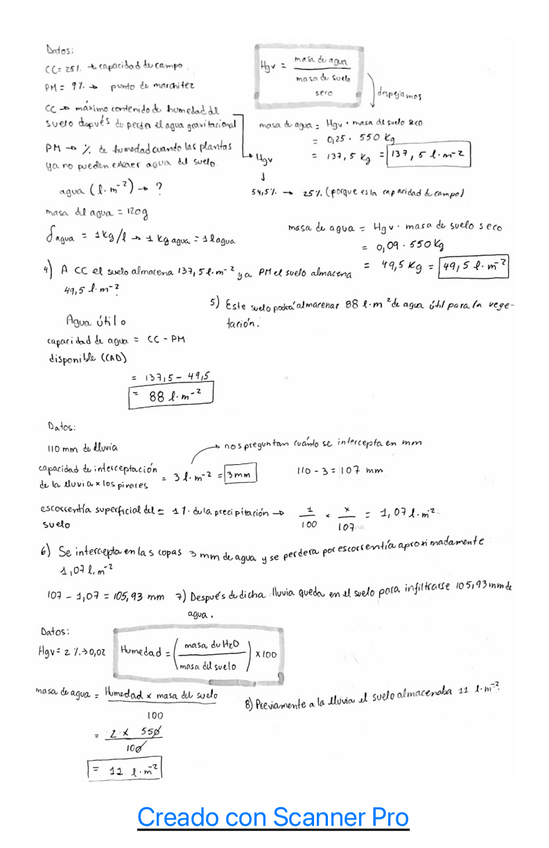 Datos:
CC = 25% → capacidad de campo.
PM = 9% → punto de marchitez
Hgv = masa de agua / masa de suelo seco
despejamos
CC → máximo contenido de humedad del
suelo después de perder el agua gravitacional
PM → % de humedad cuando las plantas
ya no pueden extraer agua del suelo
Hgv
54,5% → 25% (porque es la capacidad de campo)
masa de agua = Hgv · masa del suelo seco
= 0,25 · 550 Kg
= 137,5 Kg = 137,5 l·m⁻²
agua (l·m⁻²) → ?
masa del agua = 120g
δagua = 1Kg/l → 1 Kg agua = 1l agua
masa de agua = Hgv · masa de suelo seco
= 0,09 · 550Kg
= 49,5 Kg = 49,5 l·m⁻²
4) A CC el suelo almacena 137,5 l·m⁻² y a PM el suelo almacena
49,5 l·m⁻².
5) Este suelo podrá almacenar 88 l·m⁻² de agua útil para la vege-
tación.
Agua útil o
capacidad de agua = CC - PM
disponible (CAD)
= 137,5 - 49,5
= 88 l·m⁻²
Datos:
110 mm de lluvia
→ nos preguntan cuándo se intercepta en mm
capacidad de interceptación
de la lluvia x los pinares = 3 l·m⁻² = 3mm
110 - 3 = 107 mm
escorrentía superficial del = 1%. de la precipitación → 1/100 · x/107 = 1,07 l·m⁻²
suelo
6) Se intercepta en las copas 3 mm de agua y se perdera por escorrentía aproximadamente
1,07 l.m⁻²
107 - 1,07 = 105,93 mm
7) Después de dicha lluvia queda en el suelo para infiltrarse 105,93 mm de
agua.
Datos:
Hgv = 2% → 0,02
Humedad = (masa de H2O / masa del suelo) x 100
masa de agua = Humedad x masa del suelo / 100
= 2 x 550 / 100
= 11 l·m⁻²
8) Previamente a la lluvia el suelo almacenaba 11 l·m⁻².
Creado con Scanner Pro